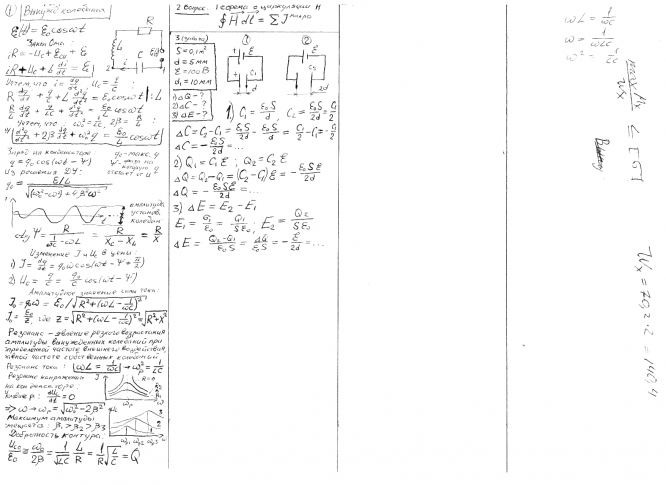 ① Вынужд колебания
ε(t) = ε₀cosωt
Закон Ома:
iR = -Uc + εси + ε
iR + Uc + L di/dt = ε
Учтем, что i = dq/dt, Uc = q/c:
R dq/dt + q/c + L d²q/dt² = ε₀cosωt |: L
R/L dq/dt + q/LC + d²q/dt² = ε₀/L cosωt
Учтем, что: ω₀² = 1/LC, 2β = R/L:
d²q/dt² + 2β dq/dt + ω₀²q = ε₀/L cosωt
R
L
C
Заряд на конденсаторе
q = q₀cos(ωt - Ψ)
q₀ - макс. q
Из решения ДУ:
q₀ = ε/L / √((ω₀²-ω²) + 4β²ω²)
амплитуда
установ.
колебан
ctgΨ = R / (1/ωc - ωL) = R / (Xc - XL) = R/X
Изменение I и Uc в цепи
1) I = dq/dt = q₀ω cos(ωt - Ψ + π/2)
2) Uc = q/c = q₀/c cos(ωt - Ψ)
Амплитудное значение силы тока:
I₀ = q₀ω = ε₀/√(R² + (ωL - 1/ωc)²)
I₀ = ε₀/Z, где Z = √(R² + (ωL - 1/ωc)²) = √(R² + X²)
Резонанс - явление резкого возрастания
амплитуды вынужденных колебаний при
определенной частоте внешнего воздействия,
равной частоте собственных колебаний
Резонанс тока: ωL = 1/ωc → ωр² = 1/LC
Резонанс напряжения
на конденсаторе:
dUc/dt = 0
=> ω → ωр = √(ω₀² - 2β²)
Максимум амплитуды
β₁ > β₂ > β₃
Добротность контура:
Uc₀/ε₀ ≅ ω₀/2β = 1/√LC L/R = 1/R √(L/C) = Q
2 вопрос. Теорема о циркуляции H
∮H dl = ΣI макро
3 (задача)
S = 0,1 м²
d = 5 мм
ε = 100 В
d₁ = 10 мм
1) ΔQ - ?
2) ΔC - ?
3) ΔE - ?
①
②
ε
C₁
d
ε
C₂
2d
1) C₁ = ε₀S/d, C₂ = ε₀S/2d = C₁/2
ΔC = C₂ - C₁ = ε₀S/2d - ε₀S/d = C₁/2 - C₁ = -C₁/2
ΔC = - ε₀S/2d = ...
2) Q₁ = C₁ε; Q₂ = C₂ε
ΔQ = Q₂ - Q₁ = (C₂ - C₁)ε = - ε₀Sε/2d
ΔQ = - ε₀Sε/2d = ...
3) ΔE = E₂ - E₁
E₁ = σ₁/ε₀ = Q₁/Sε₀; E₂ = Q₂/Sε₀
ΔE = (Q₂ - Q₁)/ε₀S = ΔQ/ε₀S = - ε/2d = ...
ωL = 1/ωc
ω = 1/ωLC
ω² = 1/LC